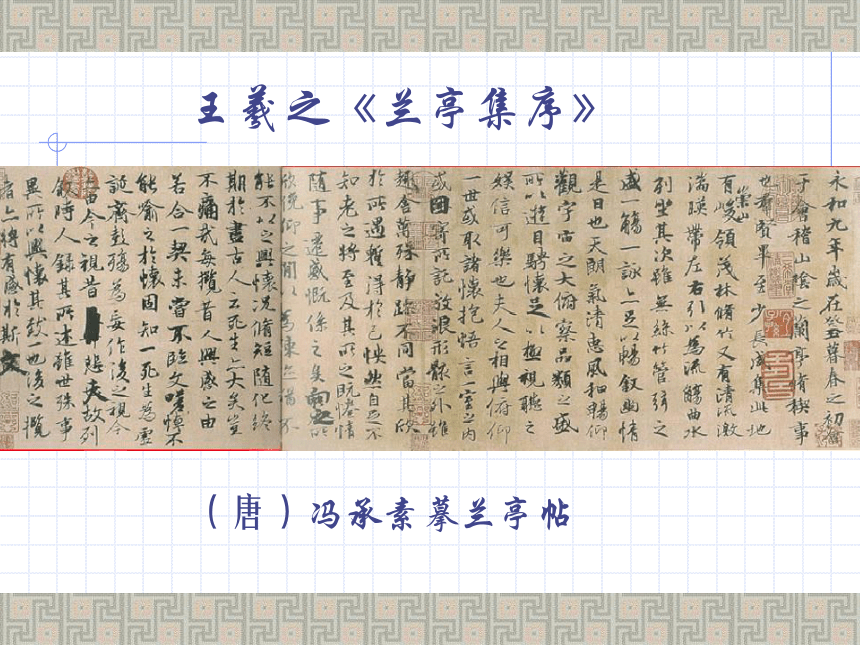 王羲之《兰亭集序》
永和九年歲在癸丑暮春之初會
于會稽山陰之蘭亭脩禊事
也群賢畢至少長咸集此地
有崇山峻領茂林脩竹又有清流激
湍暎帶左右引以為流觴曲水
列坐其次雖無絲竹管弦之
盛一觴一詠亦足以暢敘幽情
是日也天朗氣清惠風和暢仰
觀宇宙之大俯察品類之盛
所以遊目騁懷足以極視聽之
娛信可樂也夫人之相與俯仰
一世或取諸懷抱悟言一室之內
或因寄所託放浪形骸之外雖
趣舍萬殊靜躁不同當其欣
於所遇蹔得於己怏然自足不
知老之將至及其所之既惓情
隨事遷感慨係之矣向之所
欣俛仰之間以為陳迹猶不
能不以之興懷況脩短隨化終
期於盡古人云死生亦大矣豈
不痛哉每攬昔人興感之由
若合一契未嘗不臨文嗟悼不
能喻之於懷固知一死生為虛
誕齊彭殤為妄作後之視今
亦由今之視昔悲夫故列
敘時人錄其所述雖世殊事
異所以興懷其致一也後之攬
者亦將有感於斯文
（唐）冯承素摹兰亭帖